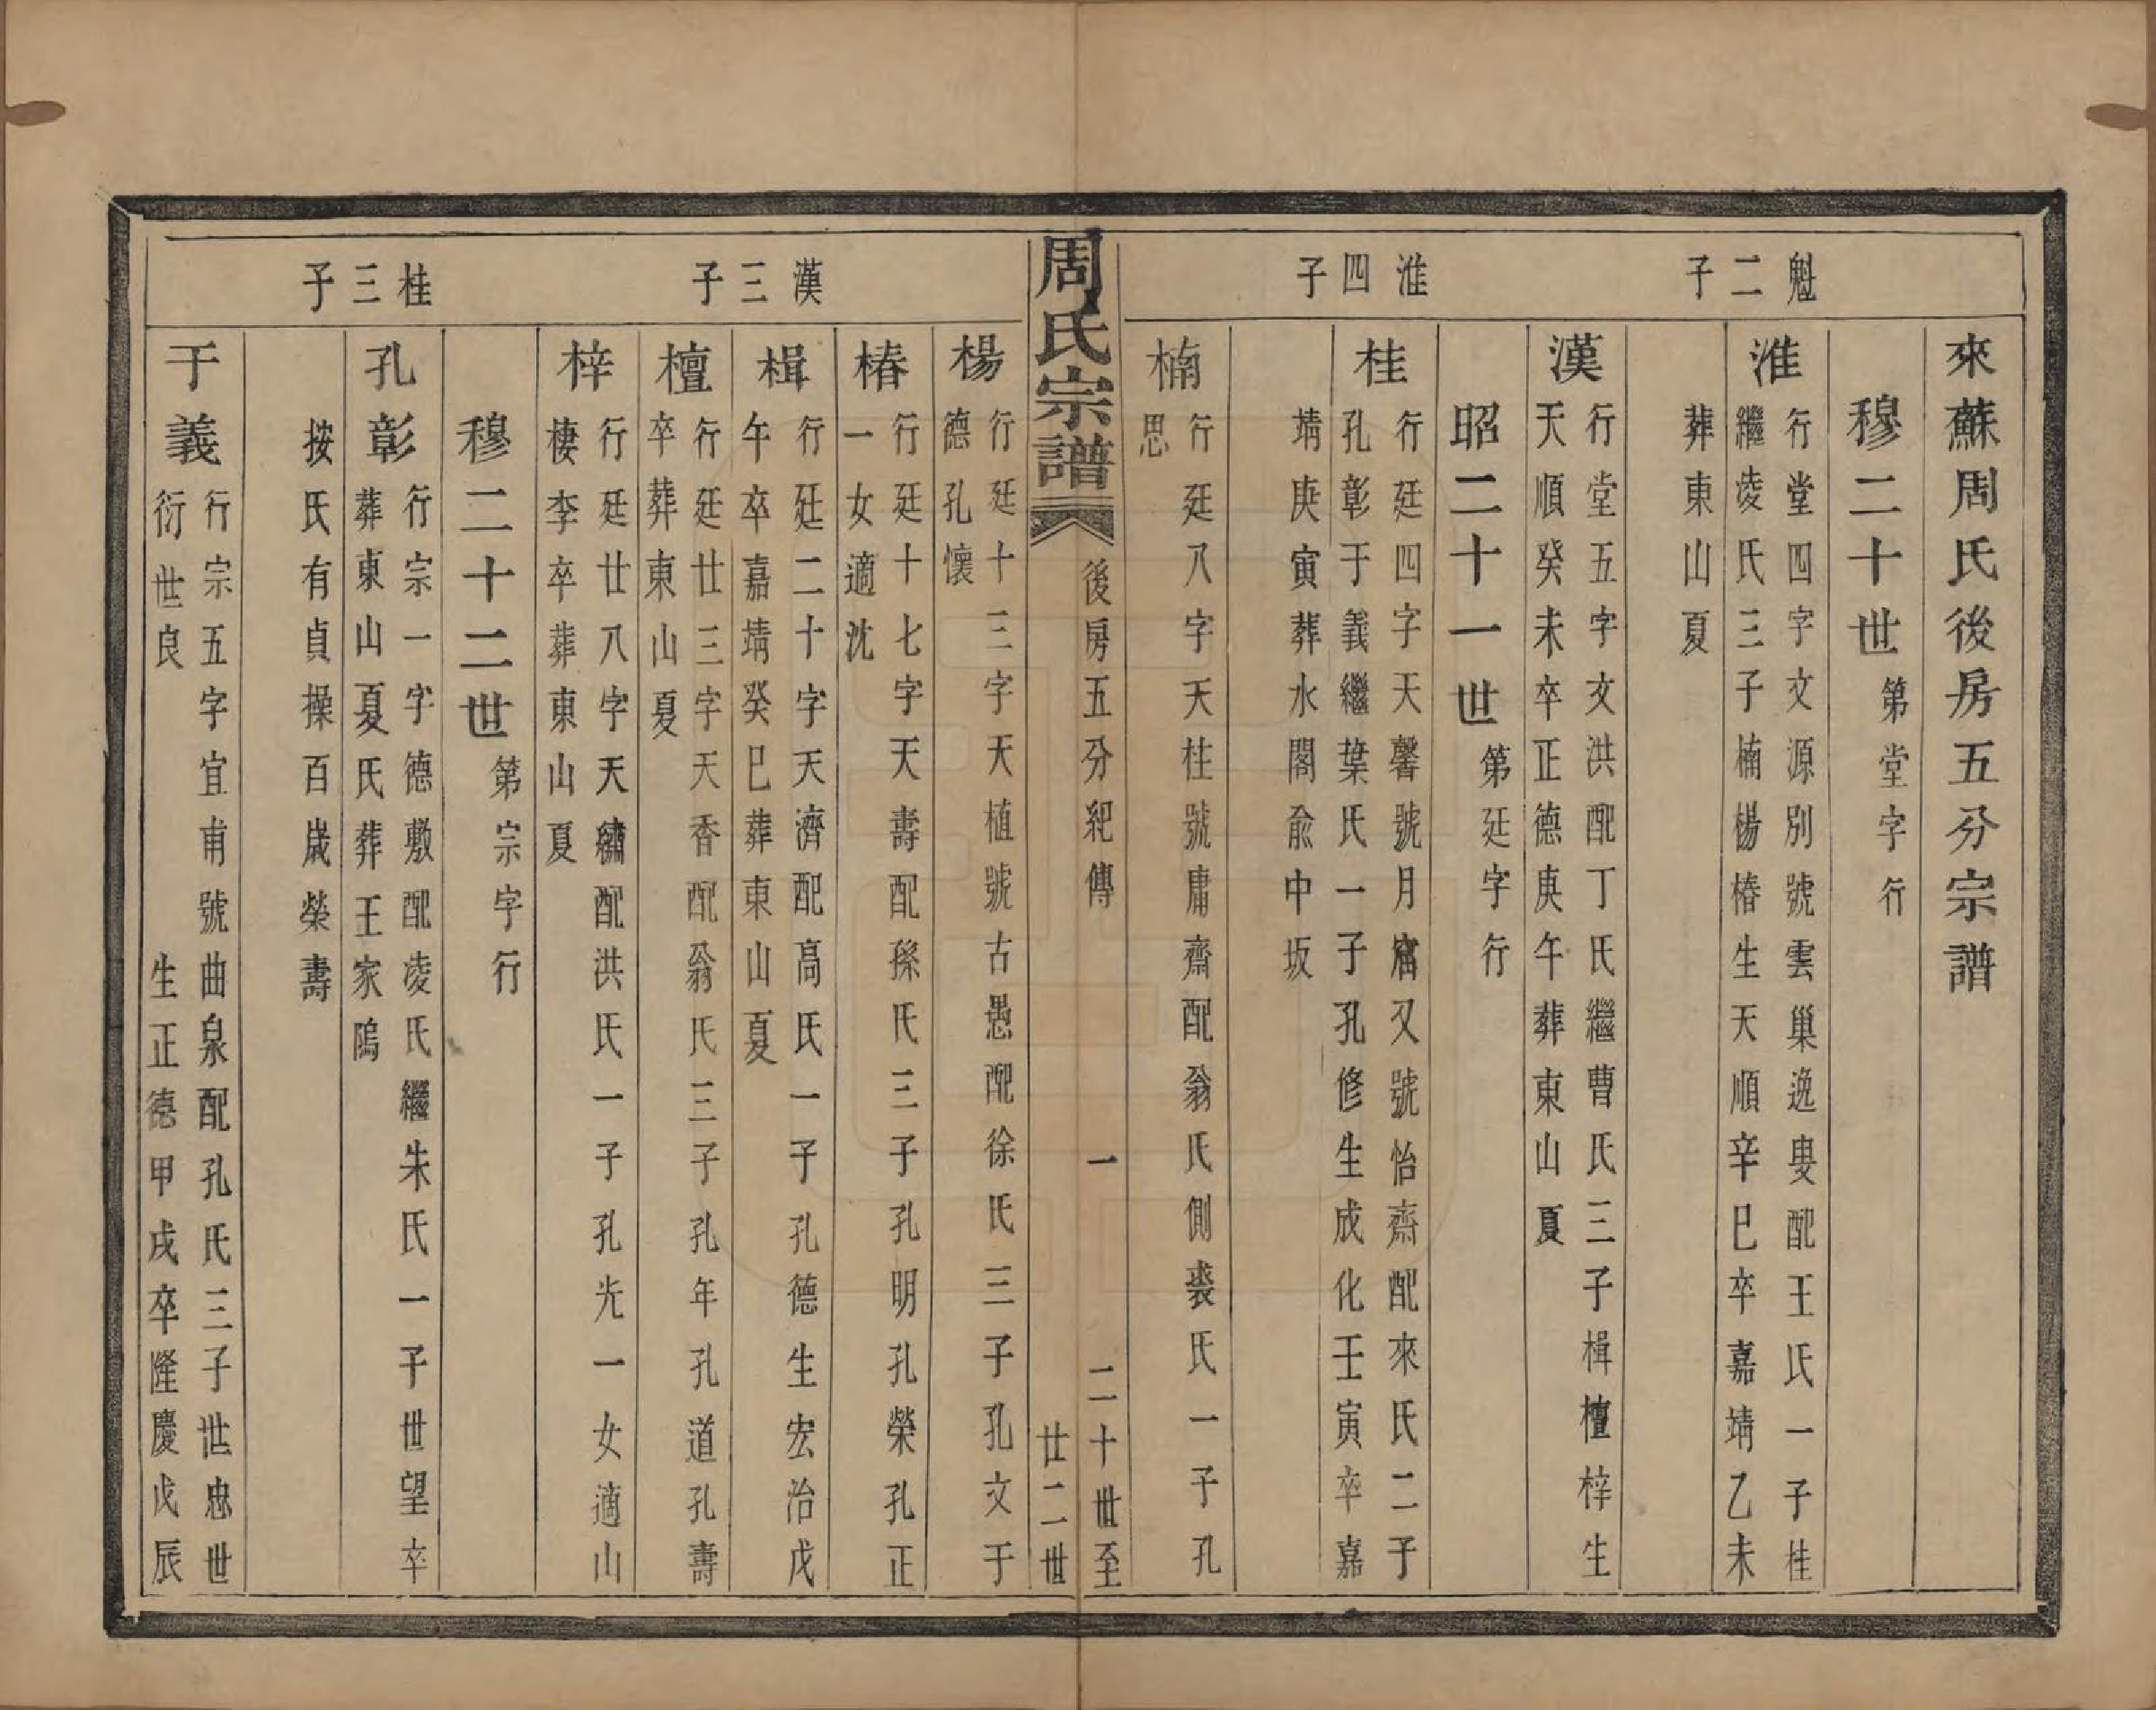 來蘇周氏後房五分宗譜
穆二十世 第堂字行
魁二子
淮 行堂四字文源別號雲巢逸叟配王氏一子桂
繼凌氏三子楠楊椿生天順辛巳卒嘉靖乙未
葬東山夏
漢 行堂五字文洪配丁氏繼曹氏三子楫檀梓生
天順癸未卒正德庚午葬東山夏
昭二十一世 第廷字行
淮四子
桂 行廷四字天馨號月窩又號怡齋配來氏二子
孔彰于義繼葉氏一子孔修生成化壬寅卒嘉
靖庚寅葬水閣俞中坂
楠 行廷八字天柱號庸齋配翁氏側裘氏一子孔
思
周氏宗譜
後房五分紀傳 一 二十世至
廿二世
楊 行廷十三字天植號古愚配徐氏三子孔文于
德孔懷
椿 行廷十七字天壽配孫氏三子孔明孔榮孔正
一女適沈
漢三子
楫 行廷二十字天濟配高氏一子孔德生宏治戊
午卒嘉靖癸巳葬東山夏
檀 行廷廿三字天香配翁氏三子孔年孔道孔壽
卒葬東山夏
梓 行廷廿八字天繡配洪氏一子孔光一女適山
棲李卒葬東山夏
穆二十二世 第宗字行
桂三子
孔彰 行宗一字德敷配凌氏繼朱氏一子世望卒
葬東山夏氏葬王家隖
按氏有貞操百歲榮壽
于義 行宗五字宜甫號曲泉配孔氏三子世忠世
衍世良 生正德甲戌卒隆慶戊辰